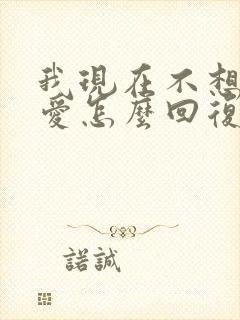 我現在不想
愛怎麼回復
諾誠